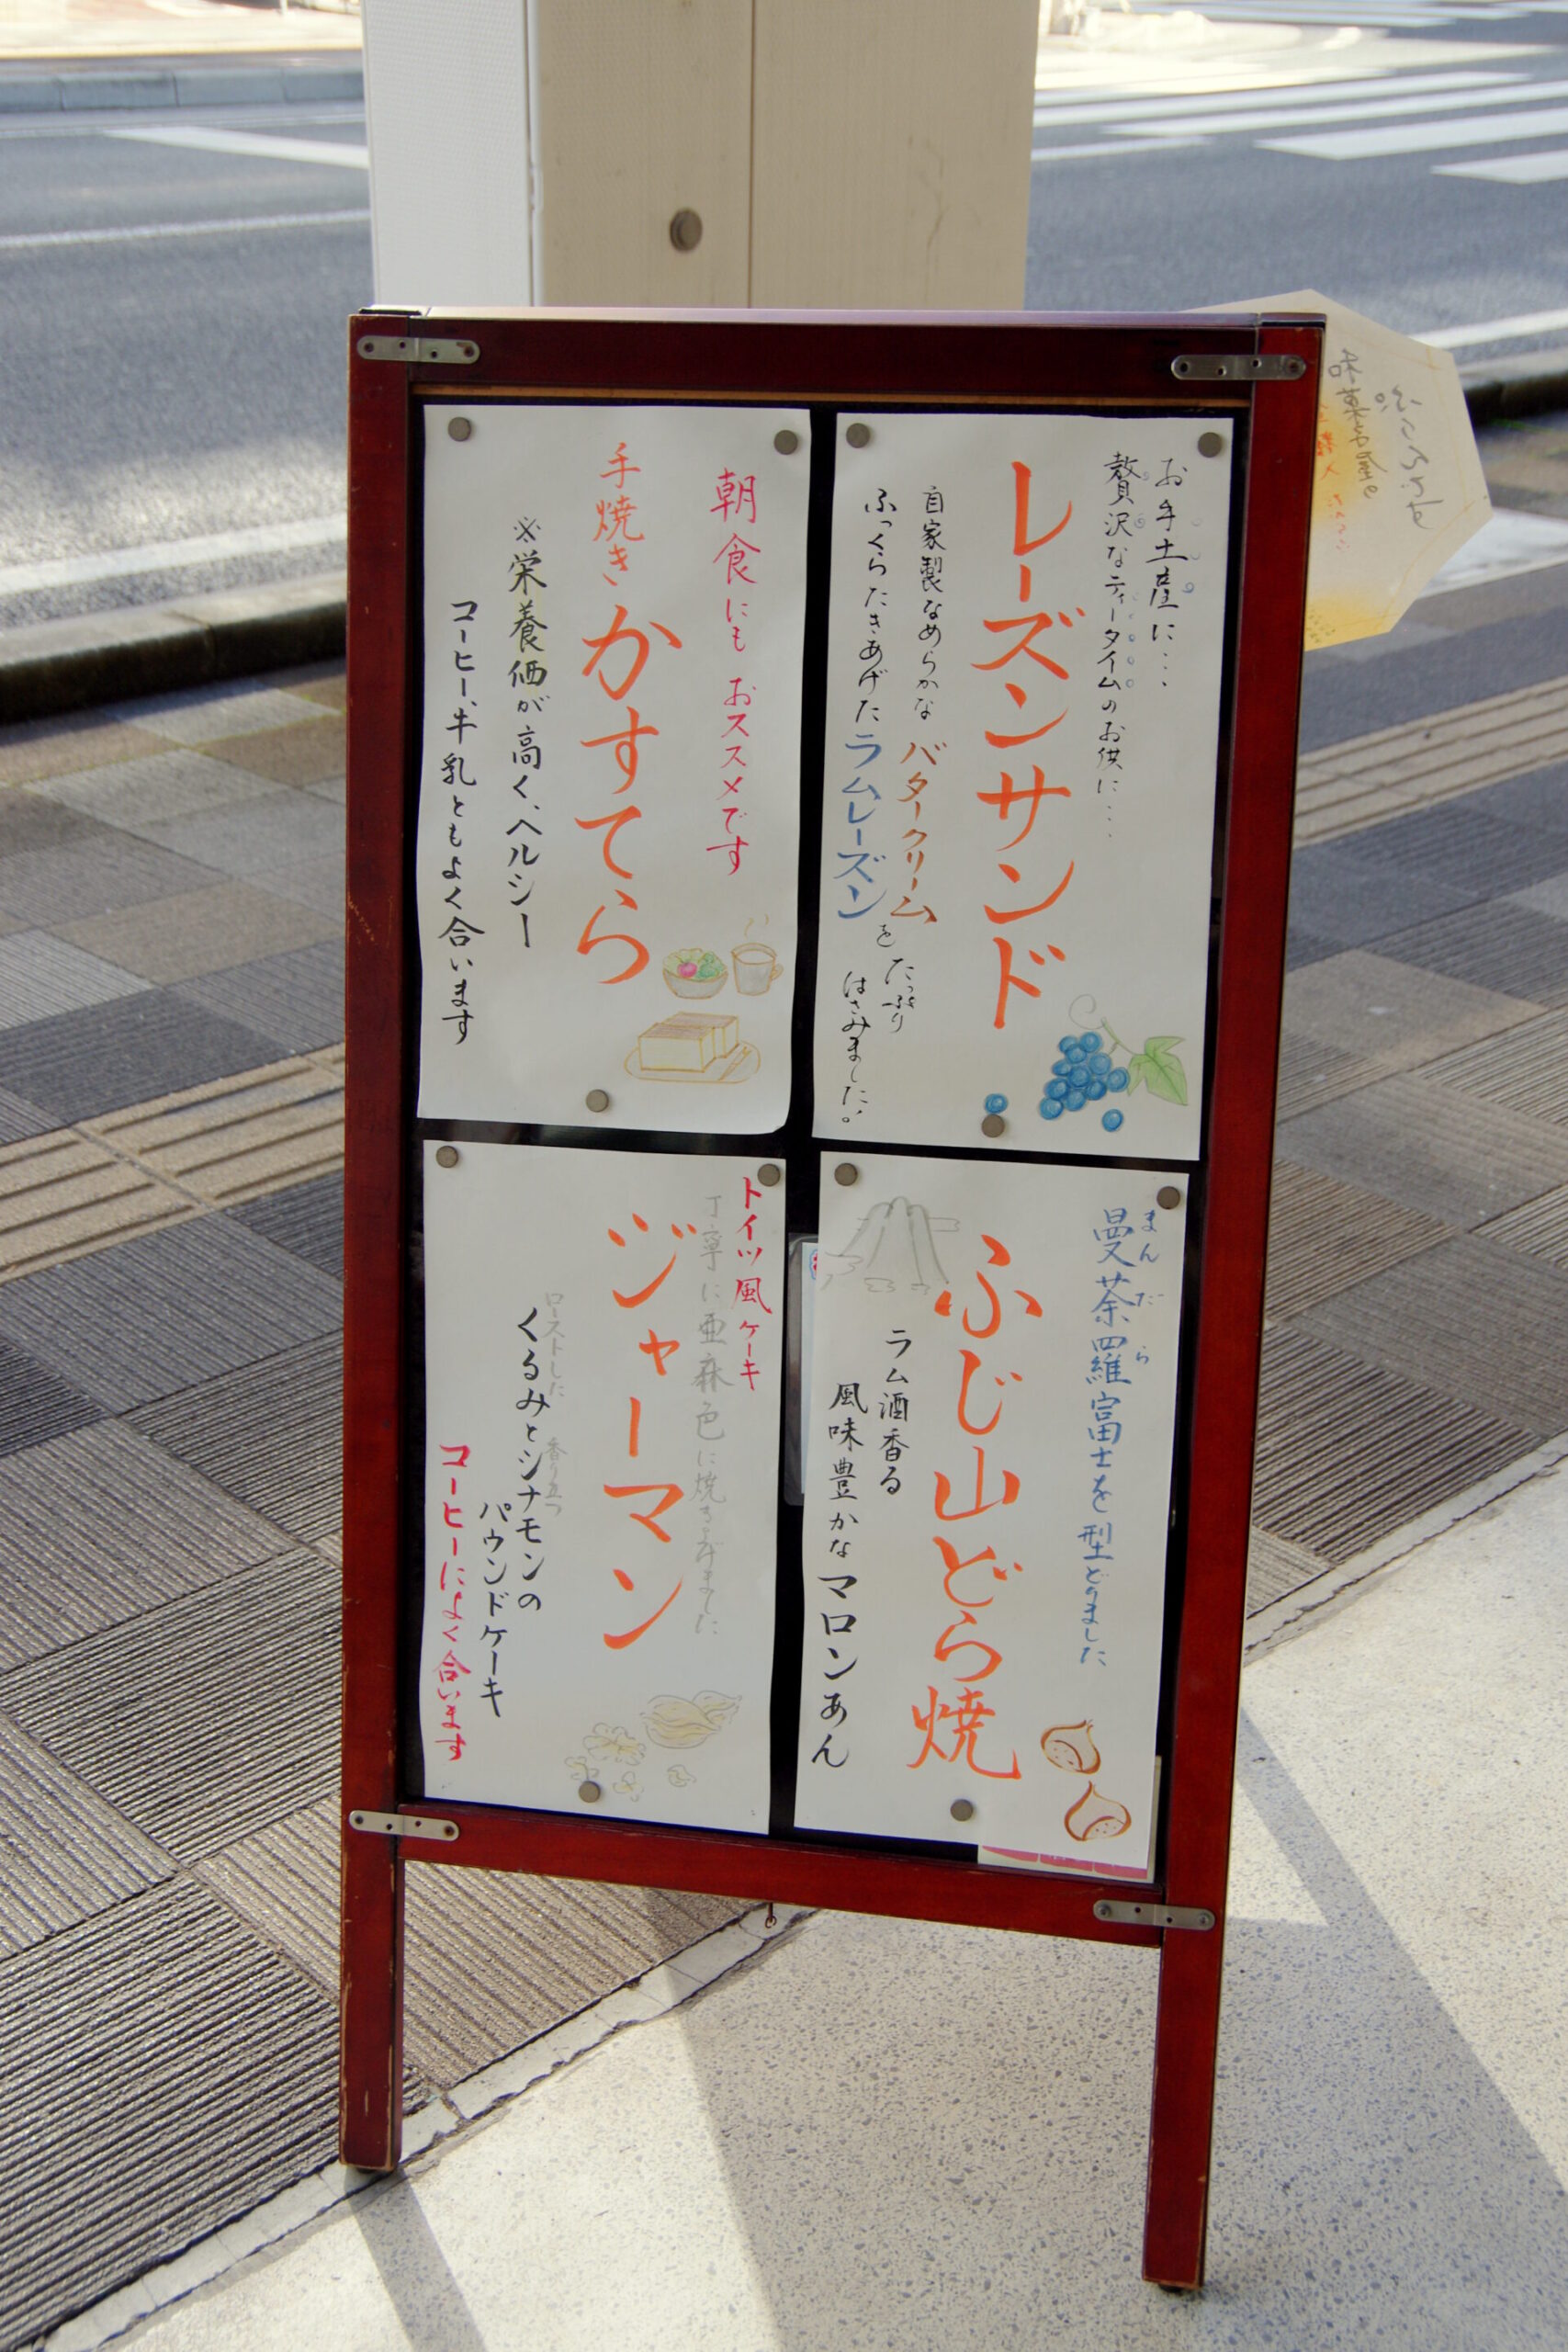 お手土産に…
贅沢なティータイムのお供に…
レーズンサンド
自家製なめらかなバタークリーム
ふっくらたきあげたラムレーズン
を
たっぷり
はさみました。
朝食にもおススメです
手焼きかすてら
※栄養価が高く、ヘルシー
コーヒー、牛乳ともよく合います
まんだら
曼荼羅富士を型どりました
ふじ山どら焼
ラム酒香る
風味豊かなマロンあん
ドイツ風ケーキ
丁寧に亜麻色に焼き上げました
ジャーマン
ローストした 香り立つ
くるみとシナモンの
パウンドケーキ
コーヒーによく合います